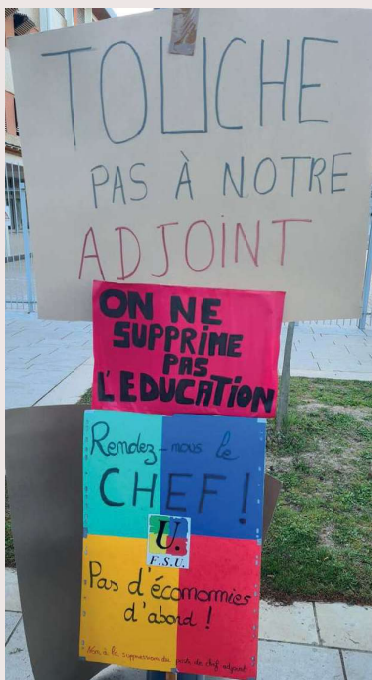 TOUCHE
PAS À NOTRE
ADJOINT
ON NE
SUPPRIME
PAS
L'EDUCATION
Rendez-nous le
CHEF!
U.
F.S.U.
Pas d'économies
d'abord !
Non à la suppression du poste de chef adjoint